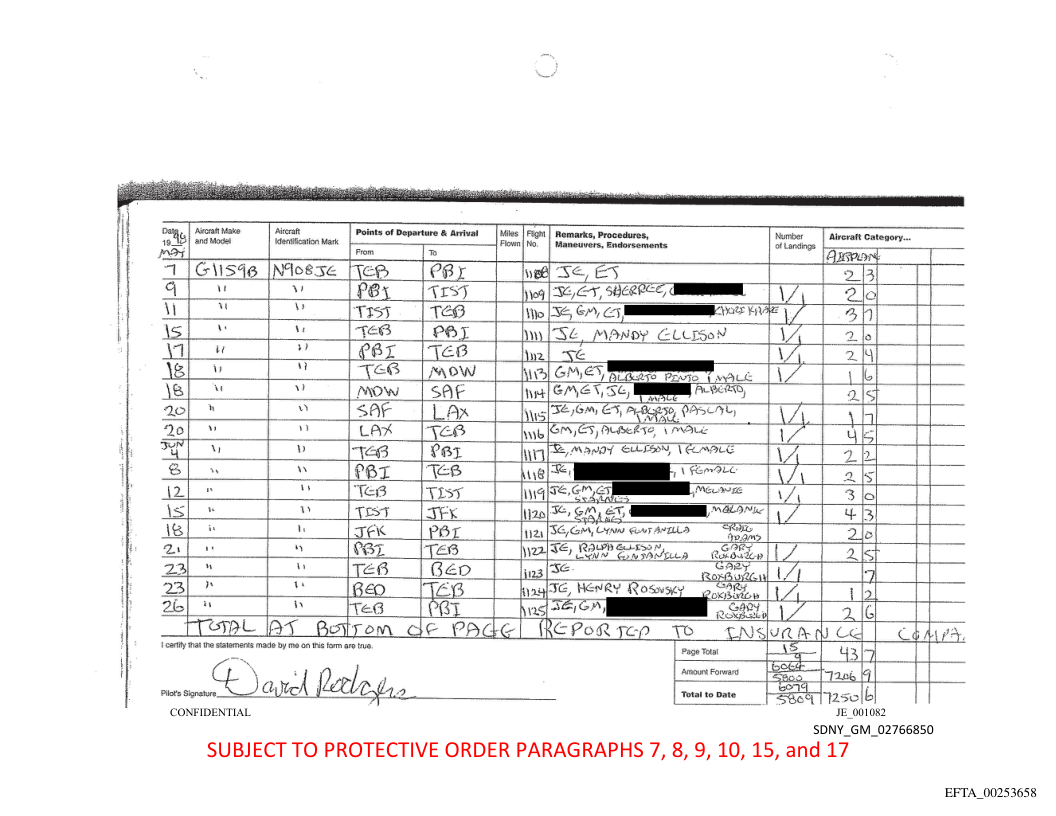 Date Aircraft Make and Model Aircraft Identification Mark Points of Departure & Arrival Miles Flown Flight No. Remarks, Procedures, Maneuvers, Endorsements Number of Landings Aircraft Category...
19 98 From To AIRPLANE
MAY
7 G1159B N908JE TEB PBI 1108 JE, ET 2 3
9 " " PBI TIST 1109 JE, ET, SHERREE, 1/1 2 0
11 " " TIST TEB 1110 JE, GM, ET, 1/ 3 7
15 " " TEB PBI 1111 JE, MANDY ELLISON 1/1 2 0
17 " " PBI TEB 1112 JE 1/1 2 4
18 " " TEB MDW 1113 GM, ET, ALBERTO PINTO 1 MALE 1/ 1 6
18 " " MDW SAF 1114 GM, ET, JE, ALBERTO, 1 MALE 2 5
20 " " SAF LAX 1115 JE, GM, ET, ALBERTO, PASCAL, 1 MALE 1/1 1 7
20 " " LAX TEB 1116 GM, ET, ALBERTO, 1 MALE 1/ 4 5
JUN
4 " " TEB PBI 1117 JE, MANDY ELLISON, 1 FEMALE 1/1 2 2
8 " " PBI TEB 1118 JE, , 1 FEMALE 1/ 2 5
12 " " TEB TIST 1119 JE, GM, ET , MELANIE STARNES 1/1 3 0
15 " " TIST JFK 1120 JE, GM, ET, , MELANIE STARNES 1/ 4 3
18 " " JFK PBI 1121 JE, GM, LYNN FONTANILLA CRAIG ADAMS 2 0
21 " " PBI TEB 1122 JE, RALPH ELLISON, LYNN FONTANILLA GARY ROXBURGH 1/ 2 5
23 " " TEB BED 1123 JE. GARY ROXBURGH 1/1 7
23 " " BED TEB 1124 JE, HENRY ROSOVSKY GARY ROXBURGH 1/1 1 2
26 " " TEB PBI 1125 JE, GM, GARY ROXBURGH 1/ 2 6
TOTAL AT BOTTOM OF PAGE REPORTED TO INSURANCE COMPA.
I certify that the statements made by me on this form are true.
Page Total 15 9 43 7
Amount Forward 6064 5800 7206 9
Total to Date 6079 5809 7250 6
Pilot's Signature David Rodgers
CONFIDENTIAL JE_001082
SDNY_GM_02766850
SUBJECT TO PROTECTIVE ORDER PARAGRAPHS 7, 8, 9, 10, 15, and 17
EFTA_00253658